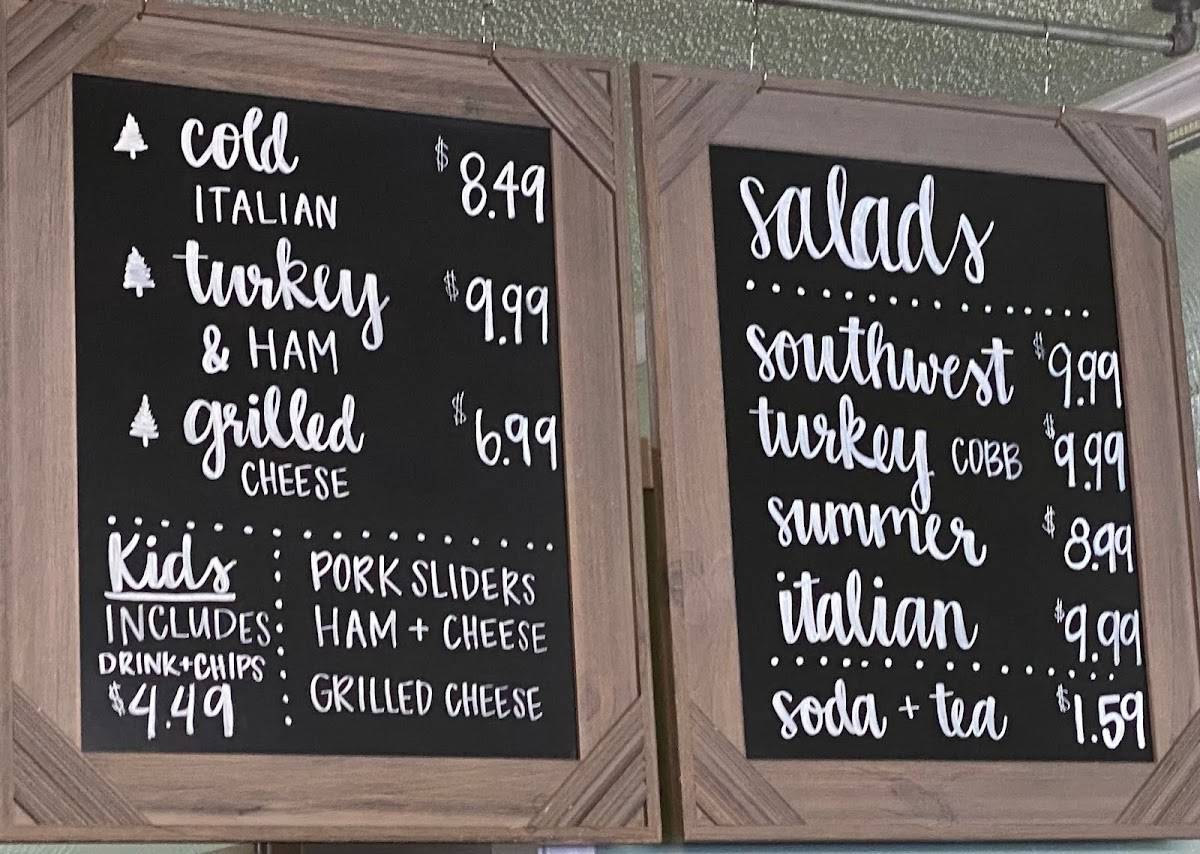 cold $8.49
ITALIAN
turkey $9.99
& HAM
grilled $6.99
CHEESE
Kids
INCLUDES
DRINK+CHIPS
$4.49
PORK SLIDERS
HAM + CHEESE
GRILLED CHEESE
salads
southwest $9.99
turkey COBB $9.99
summer $8.99
italian $9.99
soda + tea $1.59